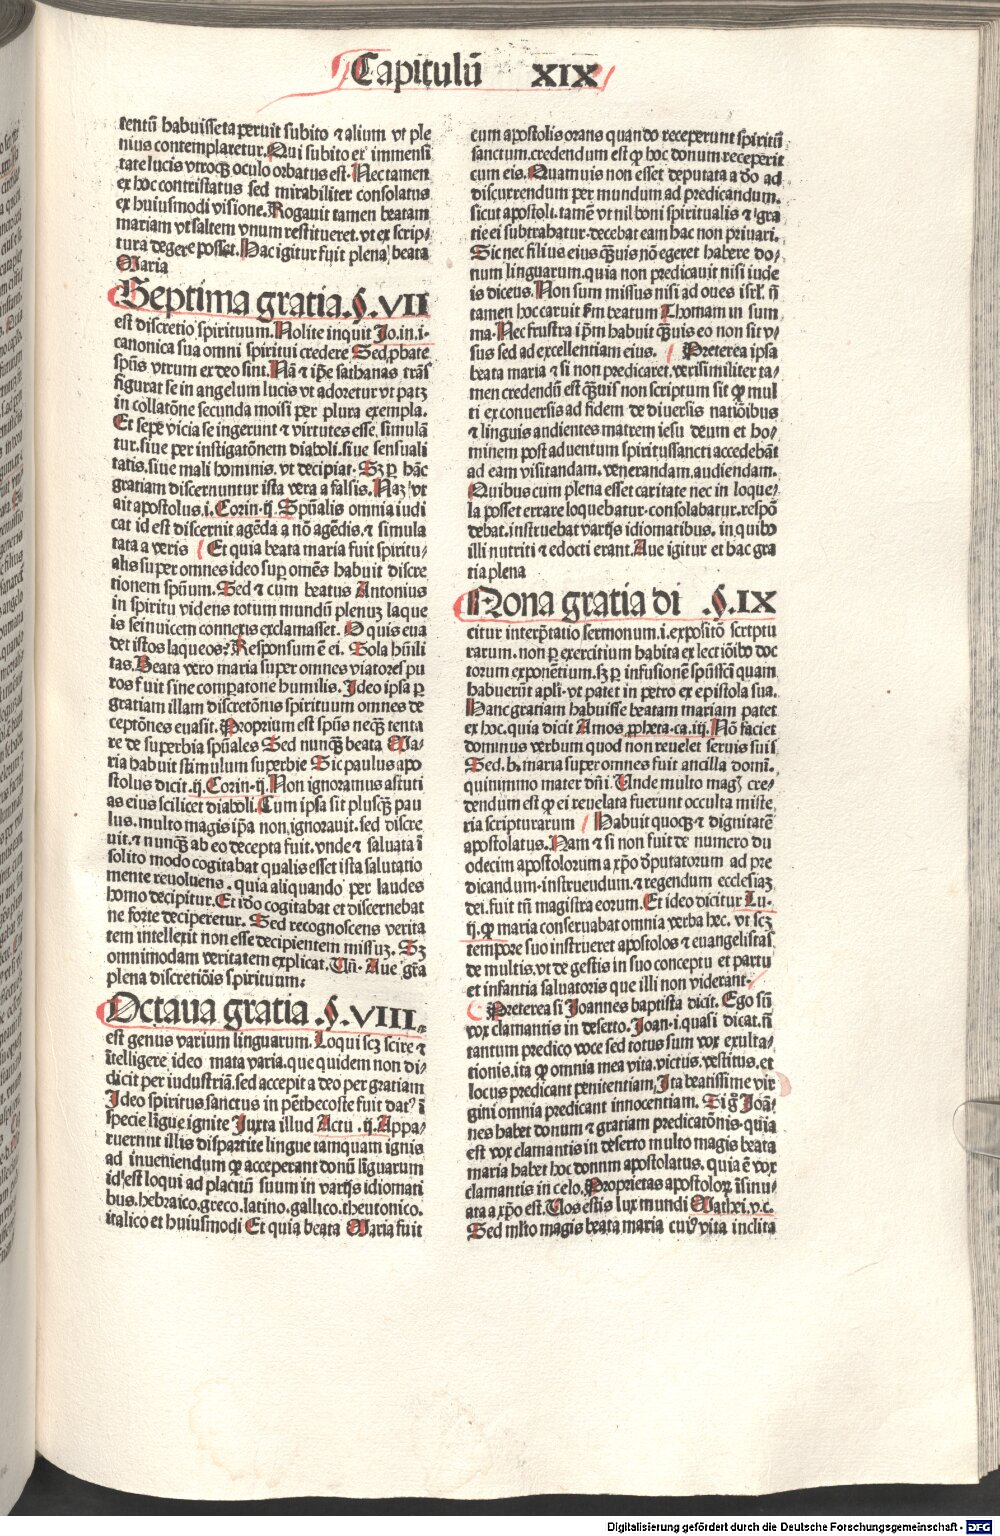 Capitulū XIX
tentū habuisset aperuit subito ⁊ alium vt ple
nius contemplaretur. Qui subito ex immensi
tate lucis vtroqꝫ oculo orbatus est. Nec tamen
ex hoc contristatus sed mirabiliter consolatus
ex huiusmodi visione. Rogauit tamen beatam
mariam vt saltem vnum restitueret. vt ex scrip-
tura degere posset. Hac igitur fuit plena beata
Maria
Septima gratia. §. VII
est discretio spirituum. Nolite inquit Jo. in .i.
canonica sua omni spiritui credere Sed ꝓbate
spūs vtrum ex deo sint. Nā ⁊ ip̄e sathanas trās
figurat se in angelum lucis vt adoretur vt patꝫ
in collatōne secunda moisi per plura exempla.
Et sepe vicia se ingerunt ⁊ virtutes esse simulā
tur. siue per instigatōnem diaboli. siue sensuali
tatis. siue mali hominis. vt decipiat. Sꝫ ꝑ hāc
gratiam discernuntur ista vera a falsis. Naꝫ vt
ait apostolus .i. Corin. ij. Spūalis omnia iudi
cat id est discernit agēda a nō agēdis. ⁊ simula
tata a veris Et quia beata maria fuit spiritu-
alis super omnes ideo suꝑ omēs habuit discre
tionem spūum. Sed ⁊ cum beatus Antonius
in spiritu videns totum mundū plenuꝫ laque
is seinuicem connexis exclamasset. O quis eua
det istos laqueos? Responsum ē ei. Sola hūili
tas. Beata vero maria super omnes viatores pu
ros fuit sine comparatone humilis. Ideo ipsa ꝑ
gratiam illam discretōnus spirituum omnes de
ceptōnes euasit. Proprium est spūs nequā tenta
re de superbia spūales Sed nunqꝫ beata Ma-
ria habuit stimulum superbie Sic paulus apo
stolus dicit .ij. Corin. ij. Non ignoramus astuti
as eius scilicet diaboli. Cum ipsa sit plusqꝫ pau
lus. multo magis ip̄a non ignorauit. sed discre
uit. ⁊ nunqꝫ ab eo decepta fuit. vnde ⁊ saluata ī
solito modo cogitabat qualis esset ista salutatio
mente reuoluens. quia aliquando per laudes
homo decipitur. Et ido cogitabat et discernebat
ne forte deciperetur. Sed recognoscens verita
tem intellexit non esse decipientem missuꝫ. Sꝫ
omnimodam veritatem explicat. Vn̄. Aue gr̄a
plena discretiōis spirituum:
Octaua gratia. §. VIII.
est genus varium linguarum. Loqui scꝫ scire ⁊
ītelligere ideo mata varia. que quidem non di-
dicit per iudustriā. sed accepit a deo per gratiam
Ideo spiritus sanctus in pēthecoste fuit datꝰ ī
specie ligue ignite Juxta illud Actū .ij. Appa-
ruernnt illis dispartite lingue tamquam ignis
ad inueniendum ꝙ acceperant donū līguarum
id est loqui ad placitū suum in varijs idiomati
bus. hebraico. greco. latino. gallico. theutonico.
italico et huiusmodi Et quia beata Maria fuit
cum apostolis orans quando receperunt spiritū
sanctum. credendum est ꝙ hoc donum receperit
cum eis. Quamuis non esset deputata a dō ad
discurrendum per mundum ad predicandum.
sicut apostoli. tamē vt nil boni spiritualis ⁊ gra
tie ei subtrabatur. decebat eam hac non priuari.
Sic nec filius eius qꝫuis nō egeret habere do-
num linguarum. quia non predicauit nisi iude
is dicens. Non sum missus nisi ad oues isrl̄. n̄
tamen hoc caruit s̄m beatum Thomam in sum
ma. Nec frustra ip̄m habuit qꝫuis eo non sit v-
sus sed ad excellentiam eius. Preterea ipsa
beata maria ⁊ si non predicaret. verisimiliter ta-
men credendū est qꝫuis non scriptum sit ꝙ mul
ti ex conuersis ad fidem de diuersis natiōibus
⁊ linguis audientes matrem iesu deum et ho-
minem post aduentum spiritussancti accedebāt
ad eam visitandam. venerandam. audiendam.
Quibus cum plena esset caritate nec in loque-
la posset errare loquebatur. consolabatur. respō
debat. instruebat varijs idiomatibus. in quibo
illi nutriti ⁊ edocti erant. Aue igitur et hac gra
tia plena
Nona gratia di §. IX
citur interp̄tatio sermonum .i. expositō scrtptu
rarum. non ꝑ exercitium habita ex lectiōibo doc
torum exponētium. sꝫ ꝑ infusionē spūssci quam
habuerūt apl̄i. vt patet in petro ex epistola sua.
Hanc gratiam habuisse beatam mariam patet
ex hoc. quia dicit Amos ꝓpheta. ca. iij. Nō faciet
dominus verbum quod non reuelet seruis suis
Sed .b. maria super omnes fuit ancilla domī.
quinimmo mater dn̄i. Unde multo magꝭ cre-
dendum est ꝙ ei reuelata fuerunt occulta miste
ria scripturarum Habuit quoqꝫ ⁊ dignitatē
apostolatus. Nam ⁊ si non fuit de numero du
odecim apostolorum a xp̄o deputatorum ad pre
dicandum. instruendum. ⁊ regendum ecclesiaꝫ
dei. fuit tn̄ magistra eorum. Et ideo dicitur Lu.
ij. ꝙ maria conseruabat omnia verba hec. vt scꝫ
tempore suo instrueret apostolos ⁊ euangelistas
de multis. vt de gestis in suo conceptu et partu
et infantia saluatoris que illi non viderant.
Preterea si Joannes baptista dicit. Ego sū
vox clamantis in deserto. Joan. i. quasi dicat. n̄
tantum predico voce sed totus sum vox exulta-
tionis. ita ꝙ omnia mea vita. victus. vestitus. et
locus predicant penitentiam. Ita beatissime vir
gini omnia predicant innocentiam. Si g̊ Joā-
nes habet donum ⁊ gratiam predicatōnis. quia
est vox clamantis in deserto multo magis beata
maria habet hoc donnm apostolatus. quia ē vox
clamantis in celo. Proprietas apostoloꝝ īsinu-
ata a xp̄o est. Uos estis lux mundi Mathei. v. c.
Sed ml̄to magis beata maria cuiꝰ vita inclita
Digitalisierung gefördert durch die Deutsche Forschungsgemeinschaft - DFG